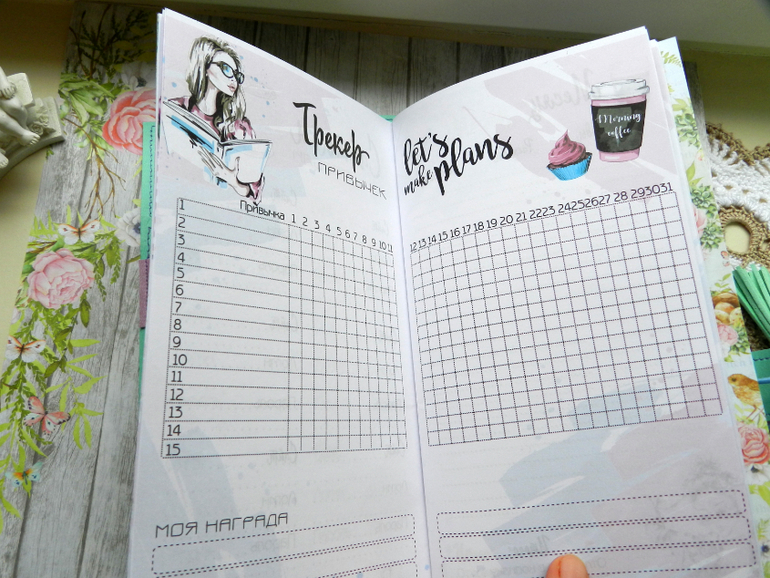 Трекер
ПРИВЫЧЕК
let's
make plans
Morning
coffee
Привычка 1 2 3 4 5 6 7 8 9 10 11
12 13 14 15 16 17 18 19 20 21 22 23 24 25 26 27 28 29 30 31
1
2
3
4
5
6
7
8
9
10
11
12
13
14
15
МОЯ НАГРАДА